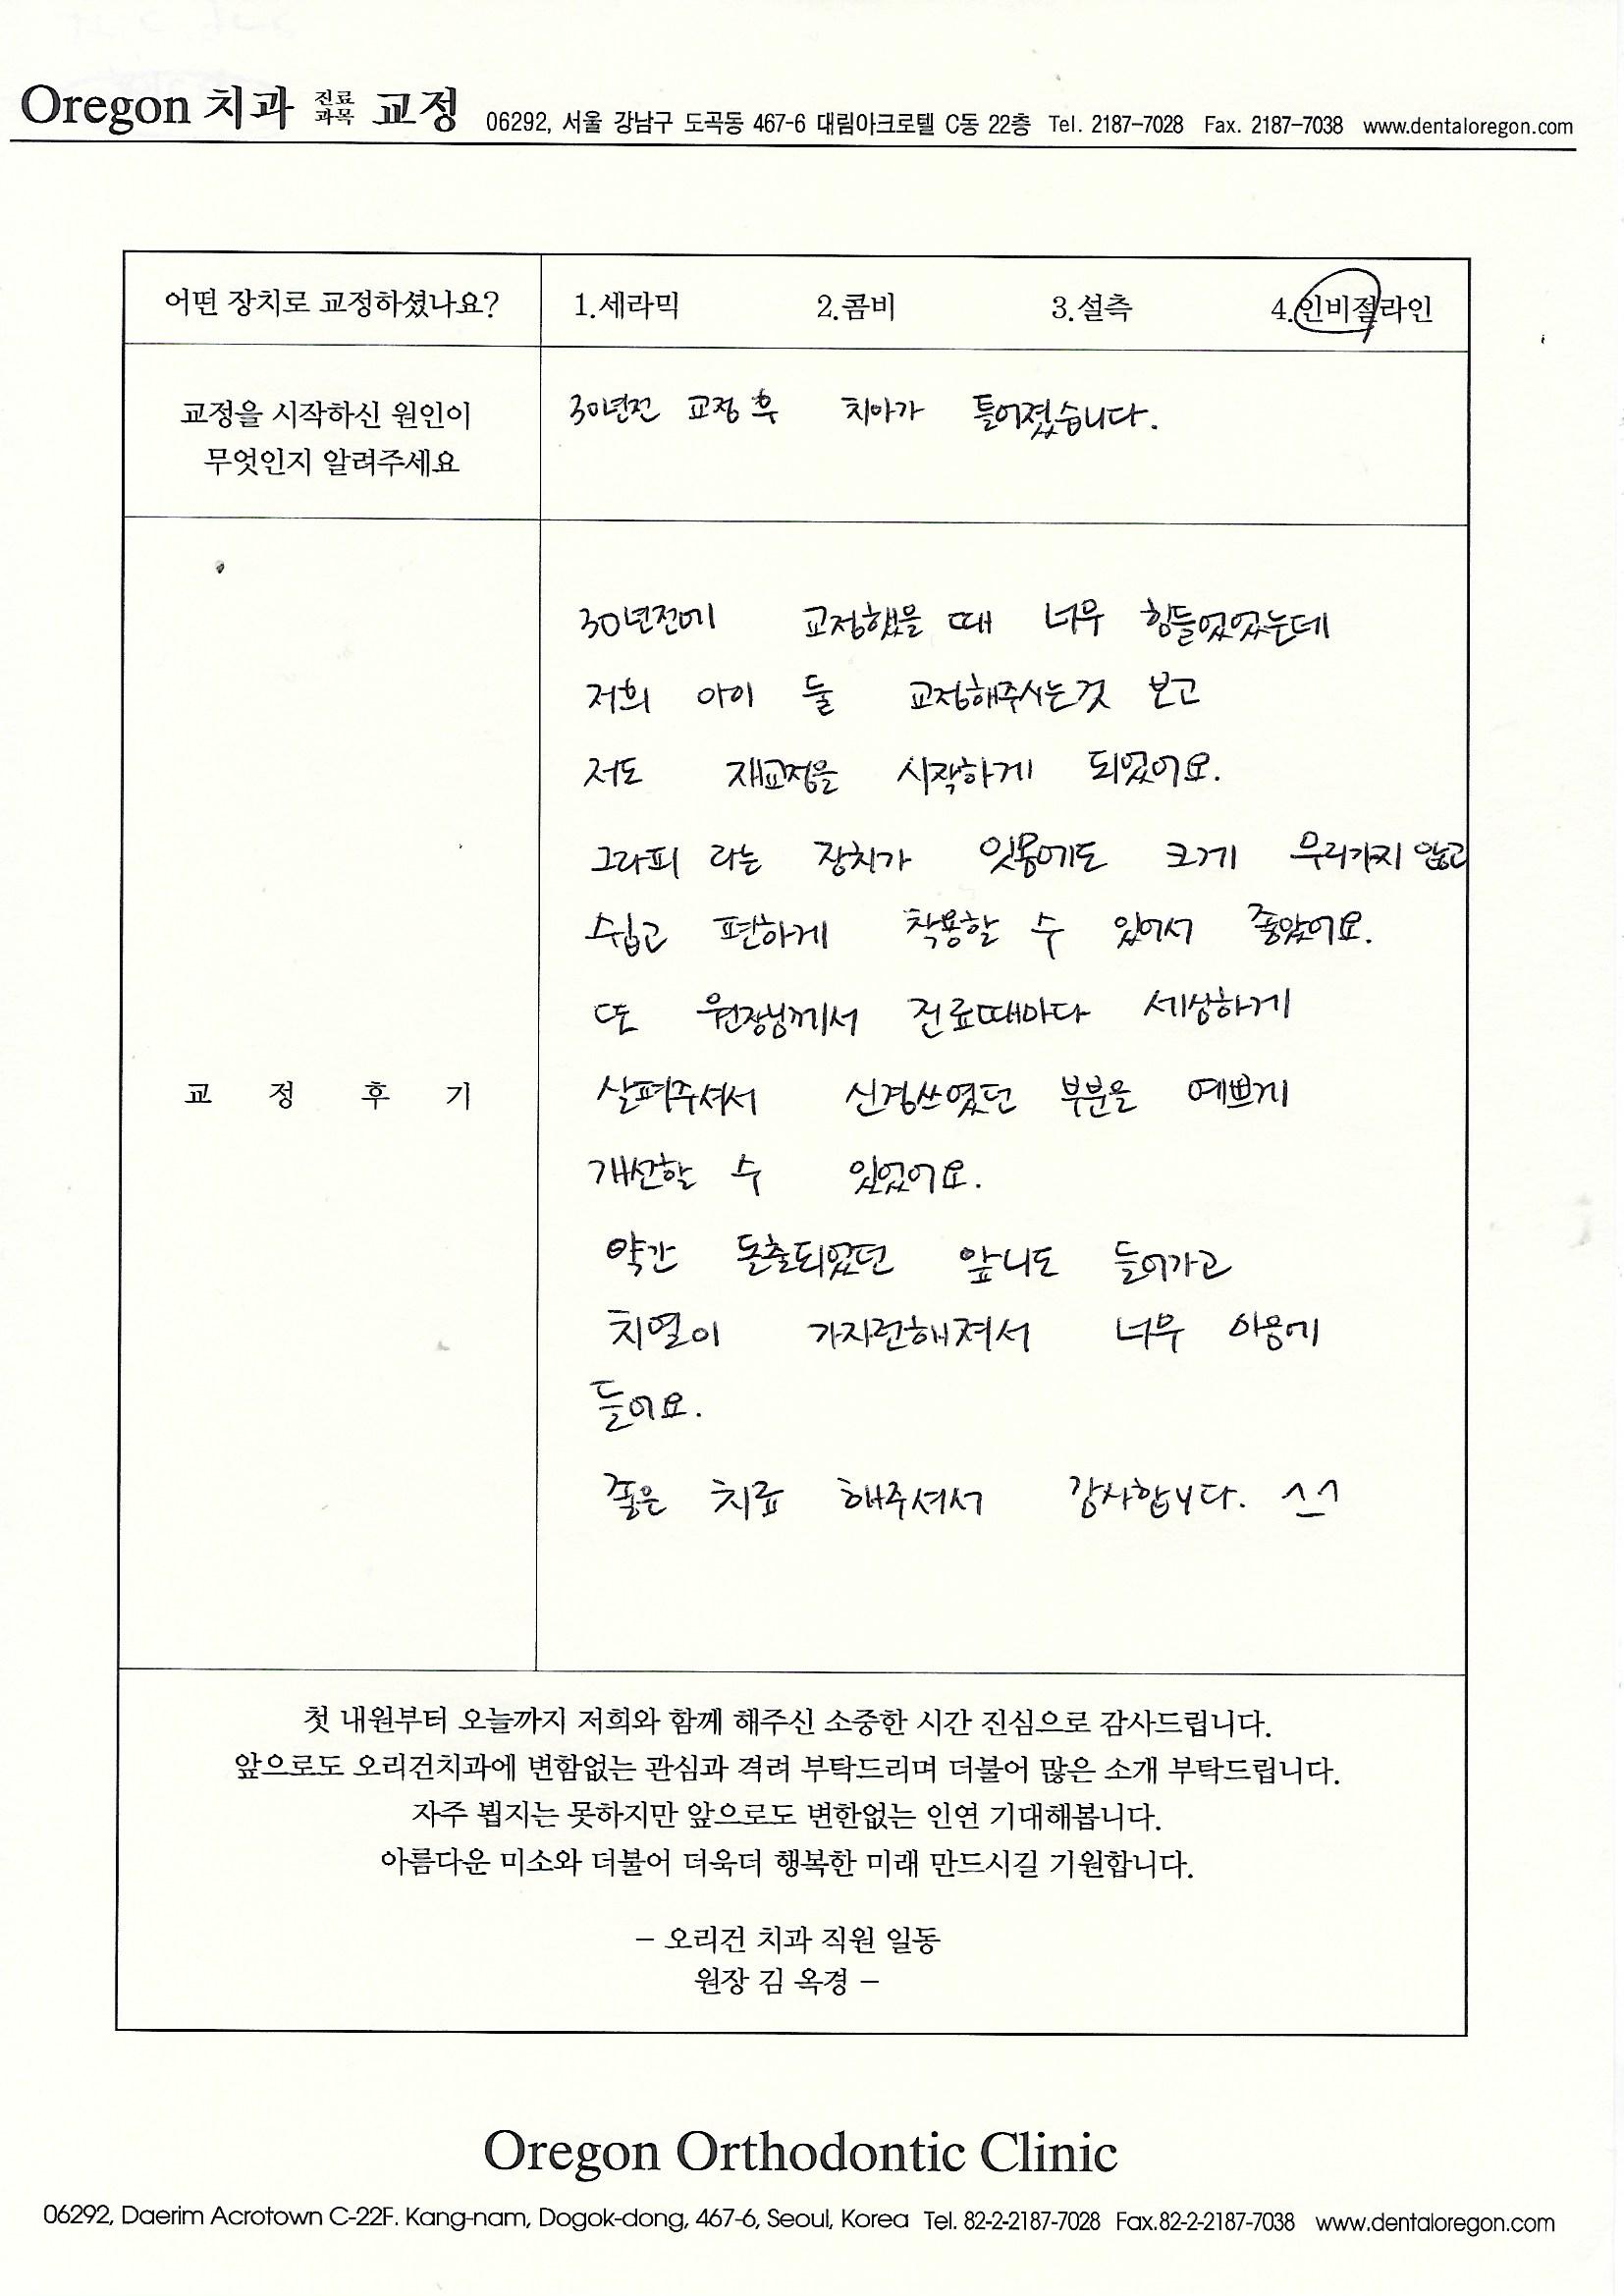 Oregon 치과 진료과목 교정 06292, 서울 강남구 도곡동 467-6 대림아크로텔 C동 22층 Tel. 2187-7028 Fax. 2187-7038 www.dentaloregon.com
어떤 장치로 교정하셨나요? 1.세라믹 2.콤비 3.설측 4.인비절라인
교정을 시작하신 원인이
무엇인지 알려주세요
30년전 교정 후 치아가 틀어졌습니다.
교 정 후 기
30년전에 교정했을 때 너무 힘들었었는데
저희 아이 둘 교정해주시는것 보고
저도 재교정을 시작하게 되었어요.
그라피 라는 장치가 잇몸에도 크게 무리가지 않고
쉽고 편하게 착용할 수 있어서 좋았어요.
또 원장님께서 진료때마다 세심하게
살펴주셔서 신경쓰였던 부분을 예쁘게
개선할 수 있었어요.
약간 돌출되었던 앞니도 들어가고
치열이 가지런해져서 너무 마음에
들어요.
좋은 치료 해주셔서 감사합니다. ^_^
첫 내원부터 오늘까지 저희와 함께 해주신 소중한 시간 진심으로 감사드립니다.
앞으로도 오리건치과에 변함없는 관심과 격려 부탁드리며 더불어 많은 소개 부탁드립니다.
자주 뵙지는 못하지만 앞으로도 변한없는 인연 기대해봅니다.
아름다운 미소와 더불어 더욱더 행복한 미래 만드시길 기원합니다.
– 오리건 치과 직원 일동
원장 김 옥경 –
Oregon Orthodontic Clinic
06292, Daerim Acrotown C-22F. Kang-nam, Dogok-dong, 467-6, Seoul, Korea Tel. 82-2-2187-7028 Fax.82-2-2187-7038 www.dentaloregon.com